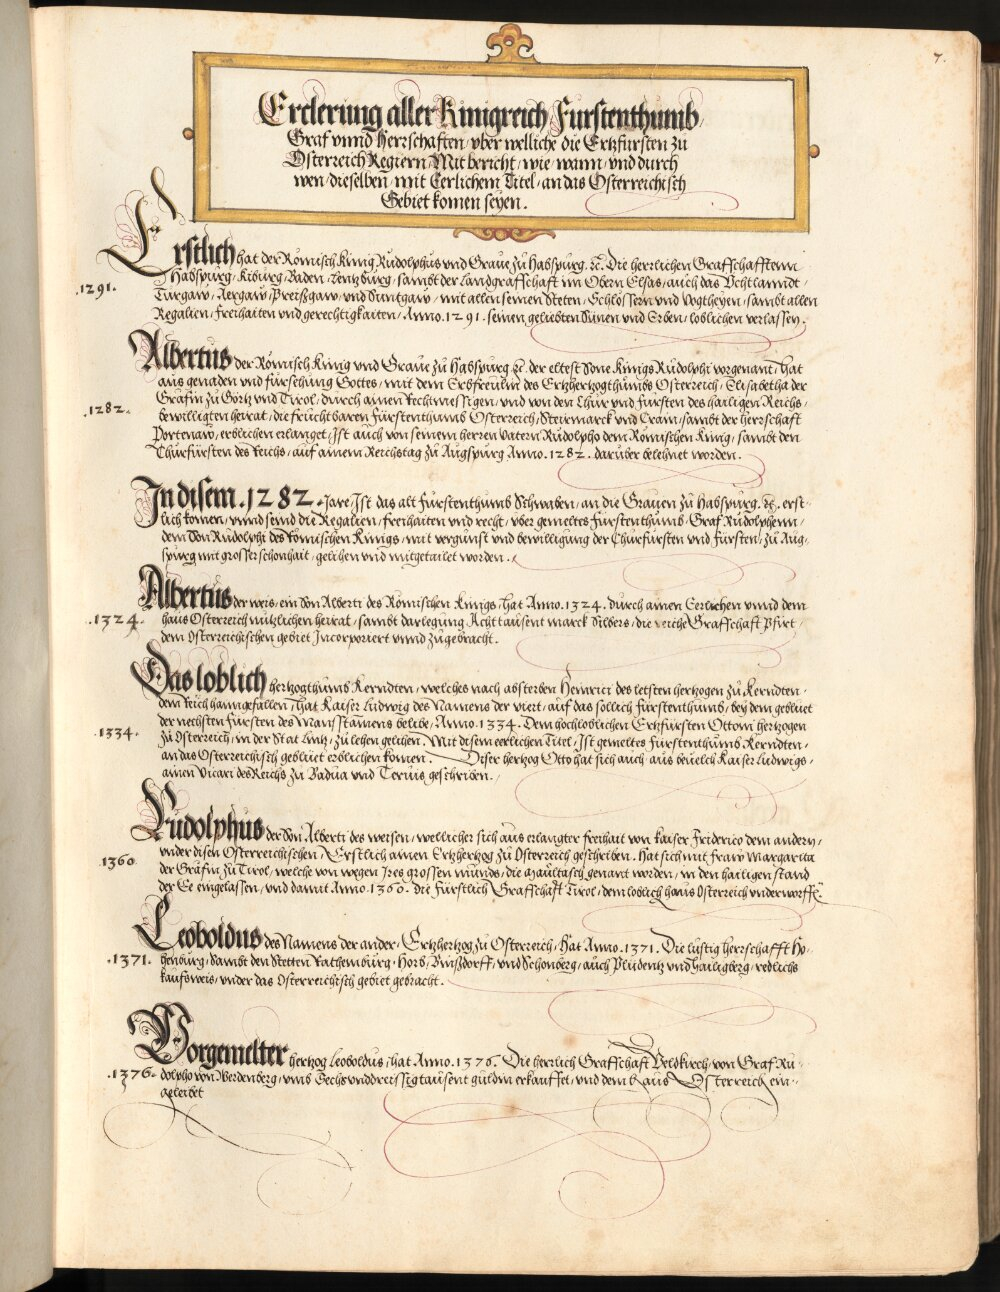 7.
Erclerung aller Kinigreich Furstenthumb,
Graf vnnd Herrschaften, vber welliche die Ertzfursten zu
Osterreich Regiern Mit bericht, wie, wann, vnd durch
wen, dieselben, mit Eerlichem Titel, an das Osterreichisch
Gebiet komen seyen.
Erstlich hat der Römisch König Rudolphus vnd Graue zu Habspurg. ꝛc. Die herrlichen Graffschafftenn
Habspurg, Kiburg, Baden, Lentzburg, sambt der Landgraffschafft im Obern Elsas, auch das Vchtlanndt,
1291.
Turgaw, Aergaw, Preißgaw, vnd Suntgaw, mit allen seinen Steten, Schlössern vnd Vogtheyen, sambt allen
Regalien, freihaiten vnd gerechtigkaiten, Anno. 1291. seinen geliebten Sünen vnd Erben, loblichen verlassen.
Albertus der Römisch König vnd Graue zu Habspurg ꝛc. der eltest Sone Künigs Rudolphi vorgenant, hat
aus genaden vnd fürsehung Gottes, mit dem Erbfreulin des Ertzhertzogthumbs Osterreich, Elisabetha der
Gräfin zu Görtz vnd Tirol, durch ainen Rechtmessigen, vnd von den Chur vnd fursten des hailigen Reichs,
1282.
bewilligten heirat, die fruchtbaren fürstenthumb Osterreich, Steirmarck vnd Crain, sambt der herrschaft
Portenaw, erblichen erlanget, Ist auch von seinem herren vatern Rudolpho dem Römischen König, sambt den
Churfürsten des Reichs, auf ainem Reichstag zu Augspurg Anno. 1282. darüber belehnet worden.
In disem .1282. Jare, Ist das alt fürstenthumb Schwaben, an die Grauen zu Habspurg. ꝛc. erst-
lich komen, vnnd seind die Regalien, freihaiten vnd recht, vber gemeltes fürstenthumb, Graf Rudolphenn,
dem Son Rudolphi des Römischen Künigs, mit vergunst vnd bewilligung der Churfursten vnd fürsten, zu Aug-
spurg mit grosser schonhait, gelihen vnd mitgetailet worden.
Albertus der weis, ein Son Alberti des Römischen Künigs, hat Anno. 1324. durch ainen Eerlichen vnnd dem
1324.
haus Osterreich nützlichen heirat, sambt darlegung Acht tausent marck Silbers, die reiche Graffschaft Pfirt,
dem Osterreichischen gebiet Incorporiert vnnd zugebracht.
Das loblich hertzogthumb Kerndten, welches nach absterben Heinrici des letsten hertzogen zu Kerndten,
dem Reich haimgefallen, Hat Kaiser Ludwig des Namens der viert, auf das sollich fürstenthumb, bey dem gebluet
der nechsten fursten des Manstamens belibe, Anno. 1334. Dem hochloblichen Ertzfürsten Ottoni hertzogen
1334.
zu Osterreich, in der Stat Lintz, zu lehen gelihen. Mit disem eerlichen Titel, Ist gemeltes furstenthumb Kerndten,
an das Osterreichisch gebluet erblichen komen. Diser hertzog Otto hat sich auch aus beuelch Kaiser Ludwigs,
ainen Vicari des Reichs zu Padua vnd Teruis geschriben.
Rudolphus der Son Alberti des weisen, wellicher sich aus erlangter freihait von Kaiser Friderico dem andern,
vnder disen Osterreichischen, Erstlich ainen Ertzhertzog zu Osterreich geschriben. Hat sich mit fraw Margarita
1360
der Gräfin zu Tirol, welche von wegen Ires grossen munds, die Maultasch genant worden, in den hailigen stand
der Ee eingelassen, vnd damit Anno. 1360. die Fürstlich Graffschafft Tirol, dem loblich haus Osterreich vnderworffē.
Leoboldus des Namens der ander, Ertzhertzog zu Osterreich, Hat Anno. 1371. Die lustig herrschafft Ho-
1371.
henburg, Sambt den Stetten Rathemburg, Horb, Binßdorff, vnd Schonberg, auch Pludentz vnd Hailigberg, redlichs
kaufsweis, vnder das Osterreichisch gebiet gebracht.
Vorgemelter hertzog Leoboldus, hat Anno. 1376. Die herrlich Graffschaft Veldkirch, von Graf Ru-
1376.
dolpho von Werdenberg, vmb Sechsvnddreissigtausent guldin erkauffet, vnd dem haus Osterreich ein-
geleibt